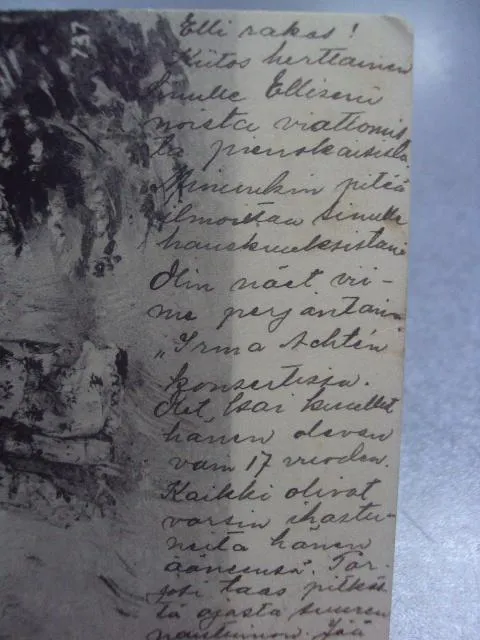 Elli rakas!
Kiitos herttainen
sinulle Elliseni
noista viattomis-
ta pienokaisista.
Minunkin pitää
ilmoittaa sinulle
hauskuuksistani
Olin näet vii-
me perjantaina
"Irma Achtén
konsertissa.
kuullut
hänen olevan
vain 17 vuoden.
Kaikki olivat
varsin ihastu-
neita hänen
ääneensä. Tar-
josi taas pitkäs-
tä ajasta suuren
nautinnon. Jää
237